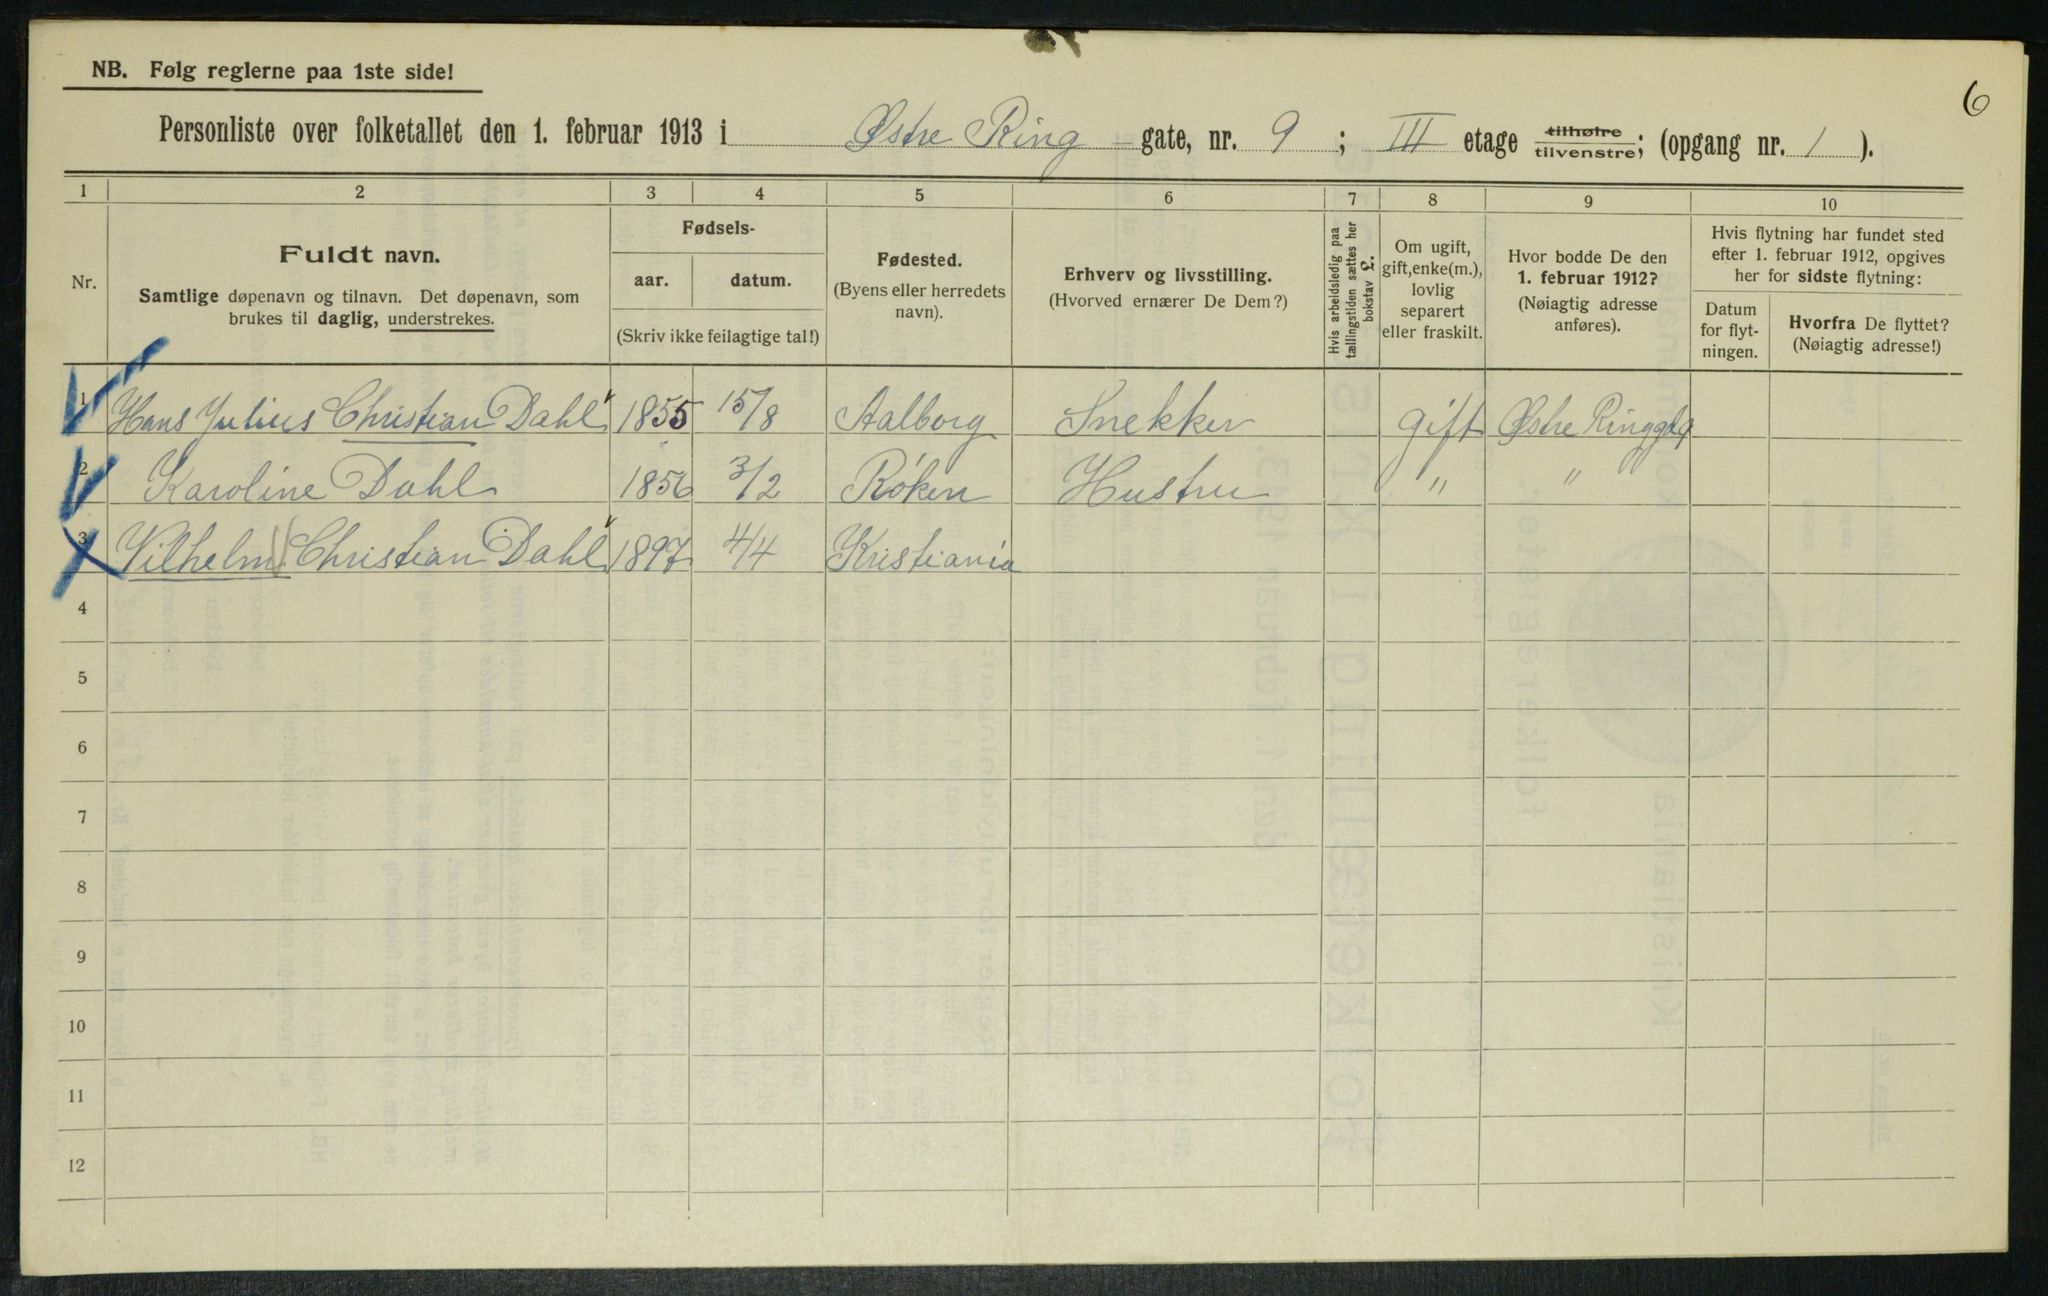 6
NB. Følg reglerne paa 1ste side!
Personliste over folketallet den 1. februar 1913 i Østre Ring gate, nr. 9 ; III etage tilhøire tilvenstre; (opgang nr. 1 ).
1 2 3 4 5 6 7 8 9 10
Nr.
Fuldt navn.
Samtlige døpenavn og tilnavn. Det døpenavn, som
brukes til daglig, understrekes.
Fødsels-
aar. datum.
(Skriv ikke feilagtige tal!)
Fødested.
(Byens eller herredets
navn).
Erhverv og livsstilling.
(Hvorved ernærer De Dem?)
Hvis arbeidsledig paa
tællingstiden sættes her
bokstav £.
Om ugift,
gift, enke(m.),
lovlig
separert
eller fraskilt.
Hvor bodde De den
1. februar 1912?
(Nøiagtig adresse
anføres).
Hvis flytning har fundet sted
efter 1. februar 1912, opgives
her for sidste flytning:
Datum
for flyt-
ningen.
Hvorfra De flyttet?
(Nøiagtig adresse!)
1 Hans Julius Christian Dahl 1855 15/8 Aalborg Snekker gift Østre Ringg
2 Karoline Dahl 1856 3/2 Röken Hustru " "
3 Vilhelm Christian Dahl 1897 4/4 Kristiania
4
5
6
7
8
9
10
11
12